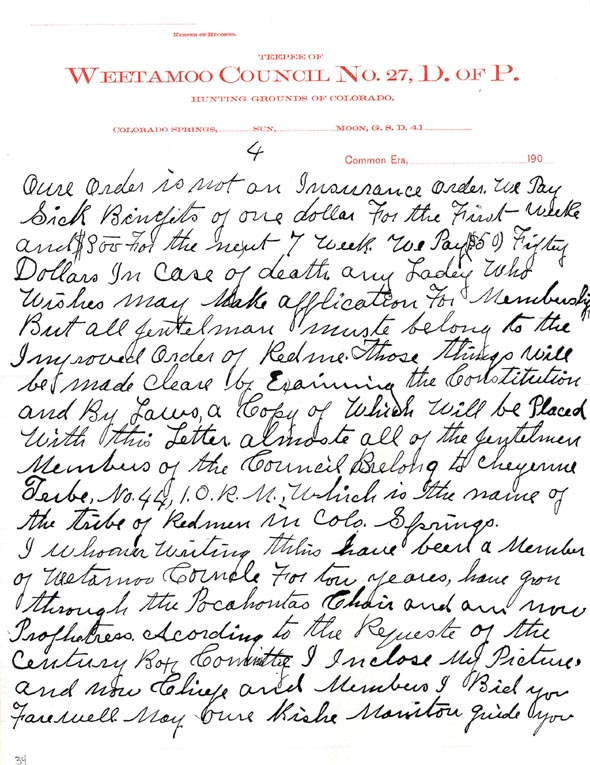 Keeper of Records.
TEEPEE OF
WEETAMOO COUNCIL NO. 27, D. OF P.
HUNTING GROUNDS OF COLORADO.
COLORADO SPRINGS, SUN, MOON, G. S. D. 41
4
Common Era, 190
Oure Order is not an Insurance Order. We Pay
Sick Benifits of one dollar For the First Weeke
and $300 For the next 7 Week. We Pay ($50) Fifty
Dollars In Case of death any Ladey Who
Wishes may Make application For Membership
But all gentelman muste belong to the
Improved Order of Redme. Those things will
be made cleare by Examining the Constitution
and By Laws, a Copy of Which Will be Placed
With this Letter almoste all of the gentelmen
Members of the Council Belong to Cheyenne
Tribe, No. 44, I.O.R.M., Which is the name of
the tribe of Redmen in Colo. Springs.
I Whoam Writing this have been a Member
of Wetamoo Councle For tow yeares, have gon
through the Pocahontas Chair and am now
Prophetress. Acording to the Requeste of the
Century Box Committe I Inclose My Picture.
and now Chiefe and Members I Bid you
Farewell May Oure Kishe Manitou guide you
34